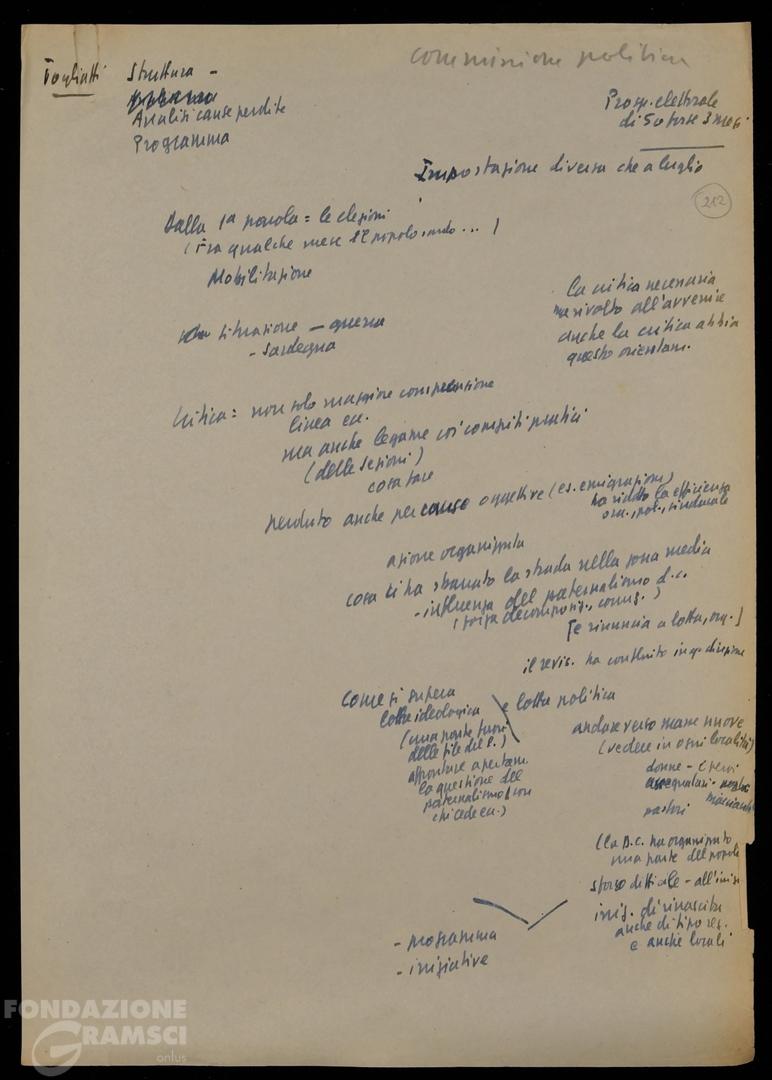 commissione politica
Togliatti Struttura -
Analisi cause perdite
Programma
Prosp. elettorale
di 5 o forse 3 mesi
Impostazione diversa che a luglio
212
Dalla 1a parola = le elezioni
(Fra qualche mese il popolo sardo ... )
Mobilitazione
La critica necessaria
ma rivolto all'avvenire
anche la critica abbia
questo orientam.
situazione - guerra
- Sardegna
Critica = non solo maggiore comprensione
linea ecc.
ma anche legame coi compiti pratici
(delle sezioni)
cosa fare
perduto anche per cause oggettive (es. emigrazione)
ha ridotto la efficienza
org., pol., sindacale
azione organizzata
cosa ci ha sbarrato la strada nella zona media
- influenza del paternalismo d.c.
(forza decomposiz., corruz.)
[e rinuncia a lotta, org.]
il revis. ha contribuito in q. direzione
Come si supera
lotta ideologica e lotta politica
(una parte fuori
delle file del P.)
affrontare apertam.
la questione del
paternalismo (con
chi cede ecc.)
andare verso masse nuove
(vedere in ogni località)
donne -
assegnatari -
pastori
(la D.C. ha organizzato
una parte del popolo
sforzo difficile - all'inizio
iniz. di rinascita
anche di tipo reg.
e anche locali
- programma
- iniziative
FONDAZIONE
GRAMSCI
onlus